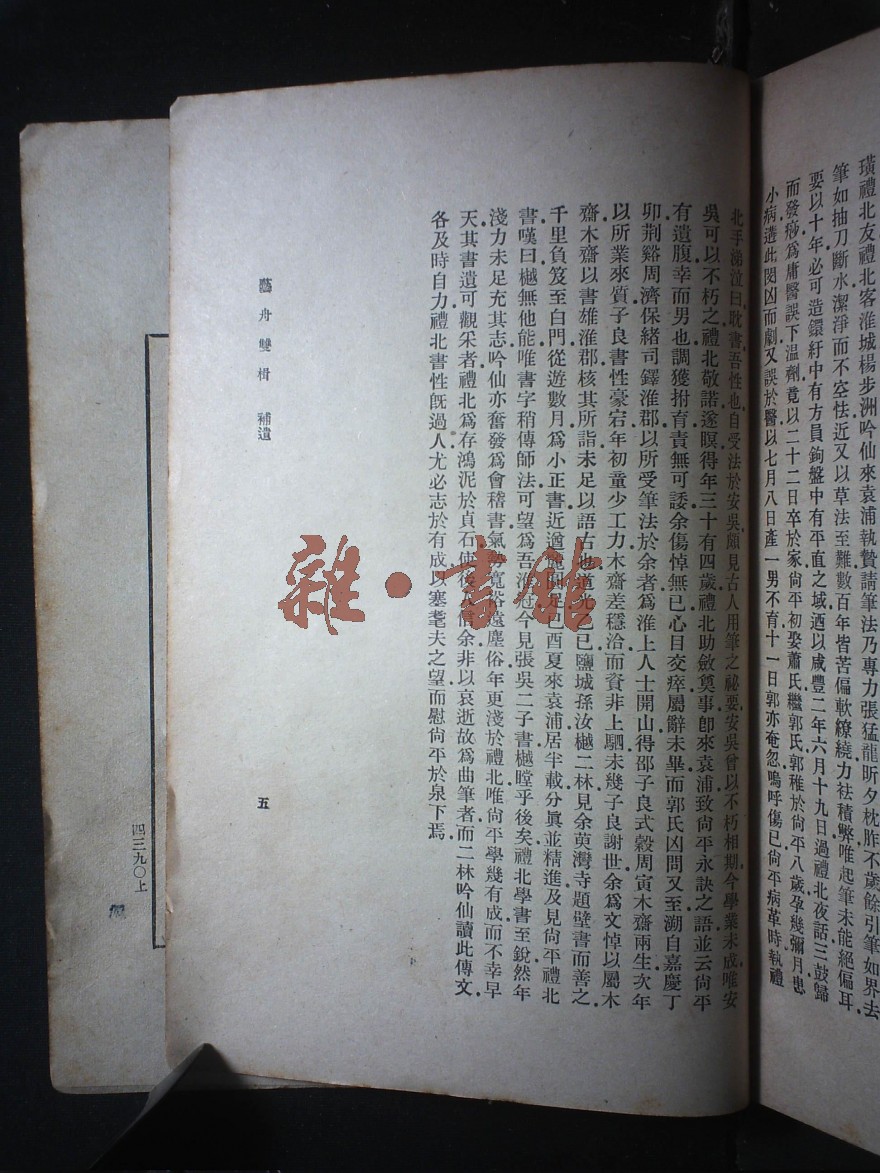 璜禮北友禮北客淮城楊步洲吟仙來袁浦執贄請筆法乃專力張猛龍昕夕枕胙不歲餘引筆如界去
筆如抽刀斷水潔淨而不空怯近又以草法至難數百年皆苦偏軟繚繞力祛積弊唯起筆未能絕偏耳
要以十年必可造鐶紆中有方員鉤盤中有平直之域迺以咸豐二年六月十九日過禮北夜話三鼓歸
而發痧爲庸醫誤下温劑竟以二十二日卒於家尙平初娶蕭氏繼郭氏郭稚於尙平八歲孕幾彌月患
小病遘此閔凶而劇又誤於醫以七月八日產一男不育十一日郭亦奄忽嗚呼傷已尙平病革時執禮
北手涕泣曰耽書吾性也自受法於安吳頗見古人用筆之祕要安吳曾以不朽相期今學業未成唯安
吳可以不朽之禮北敬諾遂瞑得年三十有四歲禮北助斂奠事卽來袁浦致尙平永訣之語並云尙平
有遺腹幸而男也調獲拊育責無可諉余傷悼無已心目交瘁屬辭未畢而郭氏凶問又至溯自嘉慶丁
卯荆谿周濟保緒司鐸淮郡以所受筆法於余者爲淮上人士開山得邵子良式穀周寅木齋兩生次年
以所業來質子良書性豪宕年初童少工力木齋差穩洽而資非上駟未幾子良謝世余爲文悼以屬木
齋木齋以書雄淮郡核其所詣未足以語古也道光乙巳鹽城孫汝樾二林見余莫灣寺題壁書而善之
千里負笈至白門從遊數月爲小正書近遒己酉夏來袁浦居半載分眞並精進及見尙平禮北
書嘆曰樾無他能唯書字稍傳師法可望爲吾淮今見張吳二子書樾瞠乎後矣禮北學書至銳然年
淺力未足充其志吟仙亦奮發爲會稽書氣勢寬裕遠塵俗年更淺於禮北唯尙平學幾有成而不幸早
天其書遺可觀采者禮北爲存鴻泥於貞石使後人信余非以哀逝故爲曲筆者而二林吟仙讀此傳文
各及時自力禮北書性旣過人尤必志於有成以塞耄夫之望而慰尙平於泉下焉
藝舟雙楫 補遺
五
四三九〇上
雜·書館